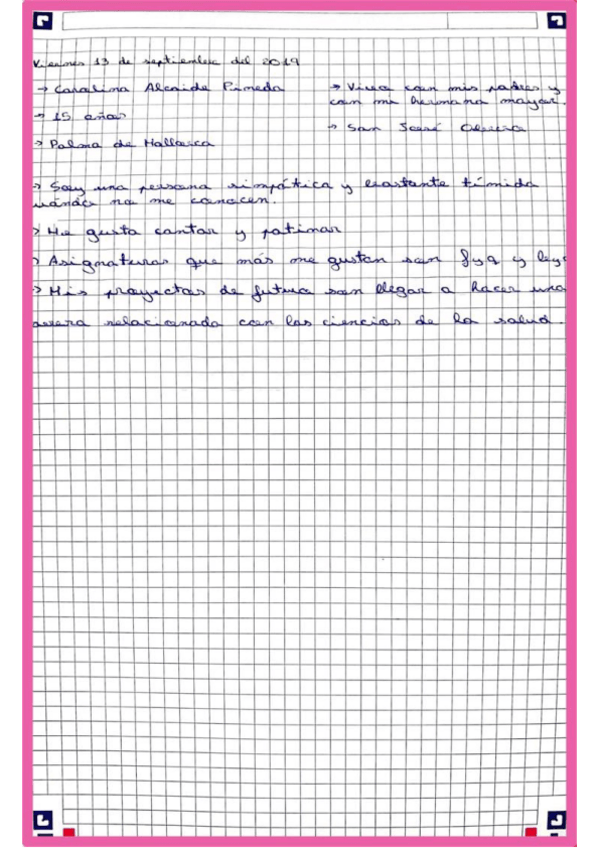 Viernes 13 de septiembre del 2019
→ Carolina Alcaide Pineda
→ 15 años
→ Palma de Mallorca
→ Vivo con mis padres y
con mi hermana mayor.
→ San José Obrero
→ Soy una persona simpática y bastante tímida
uándo no me conocen.
→ Me gusta cantar y patinar
→ Asignaturas que más me gustan son fyq y byg
→ Mis proyectos de futuro son llegar a hacer una
arrera relacionada con las ciencias de la salud.